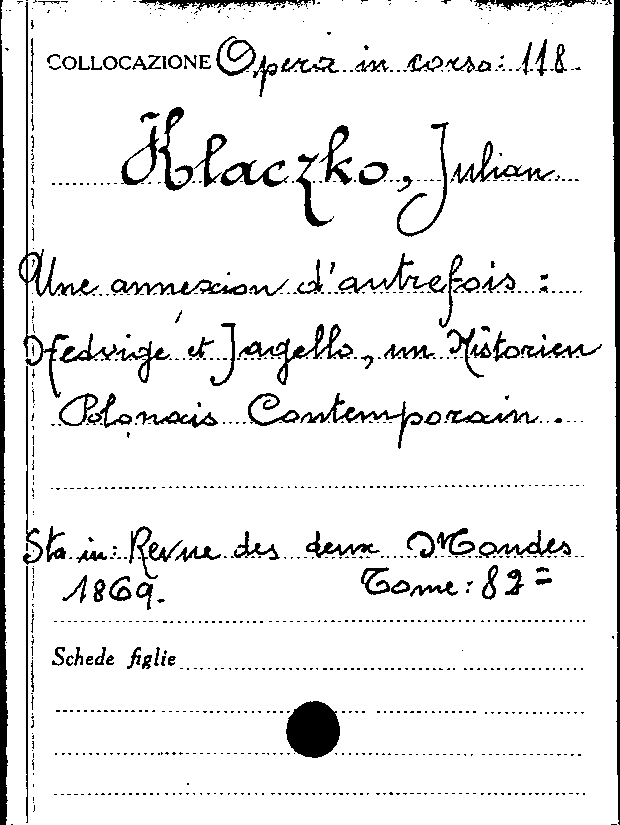 COLLOCAZIONE Opera in corso: 118.
Klaczko, Julian
Une annexion d'autrefois :
Hedvige et Jagello, un Historien
Polonais Contemporain.
Sta in: Revue des deux Mondes
1869. Tome: 82=
Schede figlie